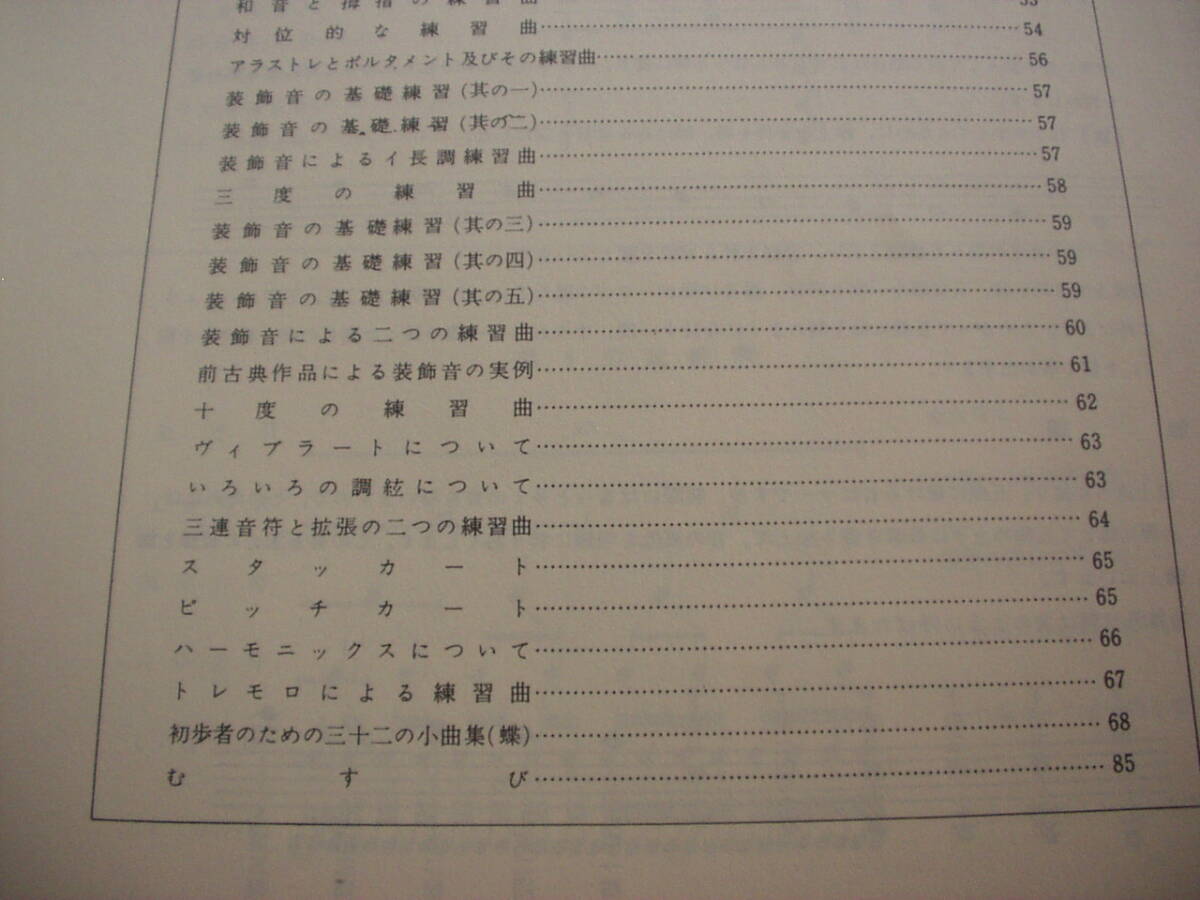 和音と拇指の練習曲……53
対位的な練習曲……54
アラストレとポルタメント及びその練習曲……56
装飾音の基礎練習(其の一)……57
装飾音の基礎練習(其の二)……57
装飾音によるイ長調練習曲……57
三度の練習曲……58
装飾音の基礎練習(其の三)……59
装飾音の基礎練習(其の四)……59
装飾音の基礎練習(其の五)……59
装飾音による二つの練習曲……60
前古典作品による装飾音の実例……61
十度の練習曲……62
ヴィブラートについて……63
いろいろの調絃について……63
三連音符と拡張の二つの練習曲……64
スタッカート……65
ピッチカート……65
ハーモニックスについて……66
トレモロによる練習曲……67
初歩者のための三十二の小曲集(蝶)……68
むすび……85